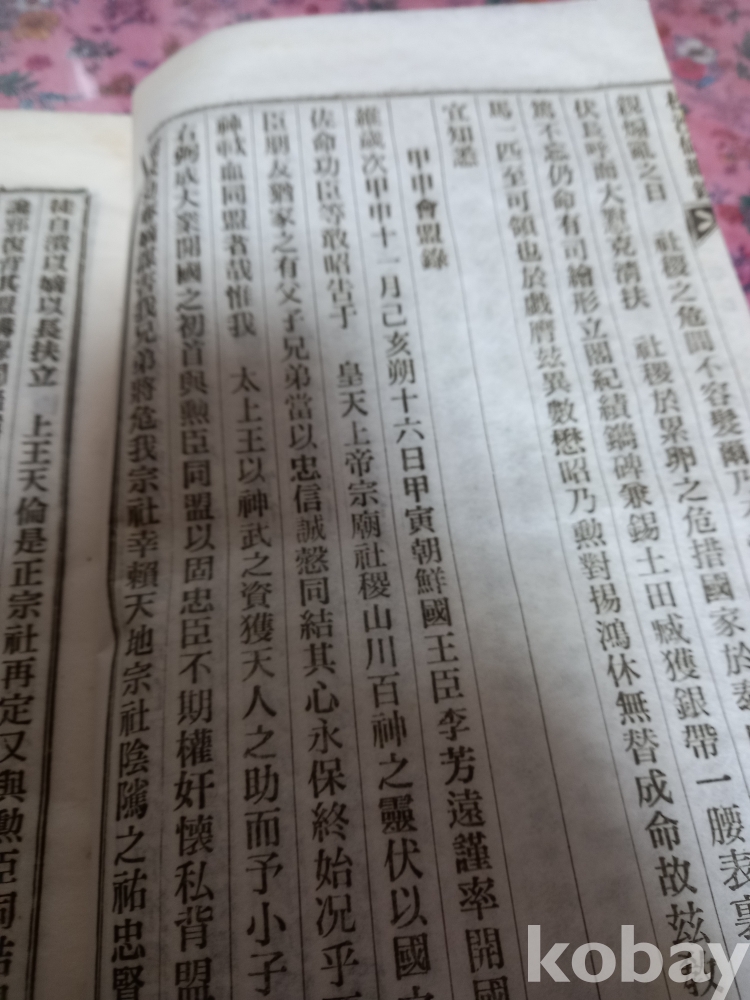 親煽亂之日 社稷之危間不容髮爾乃
伏良呼而大對克濟扶 社稷於累卵之危措國家於泰
篤不忘仍命有司繪形立閣紀績鐫碑兼錫土田臧獲銀帶一腰表裏
馬一匹至可領也於戲膺玆異數懋昭乃勲對揚鴻休無替成命故玆敎
宜知悉
甲申會盟錄
維歲次甲申十一月己亥朔十六日甲寅朝鮮國王臣李芳遠謹率開國
佐命功臣等敢昭告于 皇天上帝宗廟社稷山川百神之靈伏以國
臣朋友猶家之有父子兄弟當以忠信誠慤同結其心永保終始况乎
神㰱血同盟者哉惟我 太上王以神武之資獲天人之助而予小子
右弼成大業開國之初首與勲臣同盟以固忠臣不期權奸懷私背盟
我兄弟將危我宗社幸賴天地宗社陰隲之祐忠賢
徒自潰以嫡以長扶立 上王天倫是正宗社再定又與勲臣同結
kobay